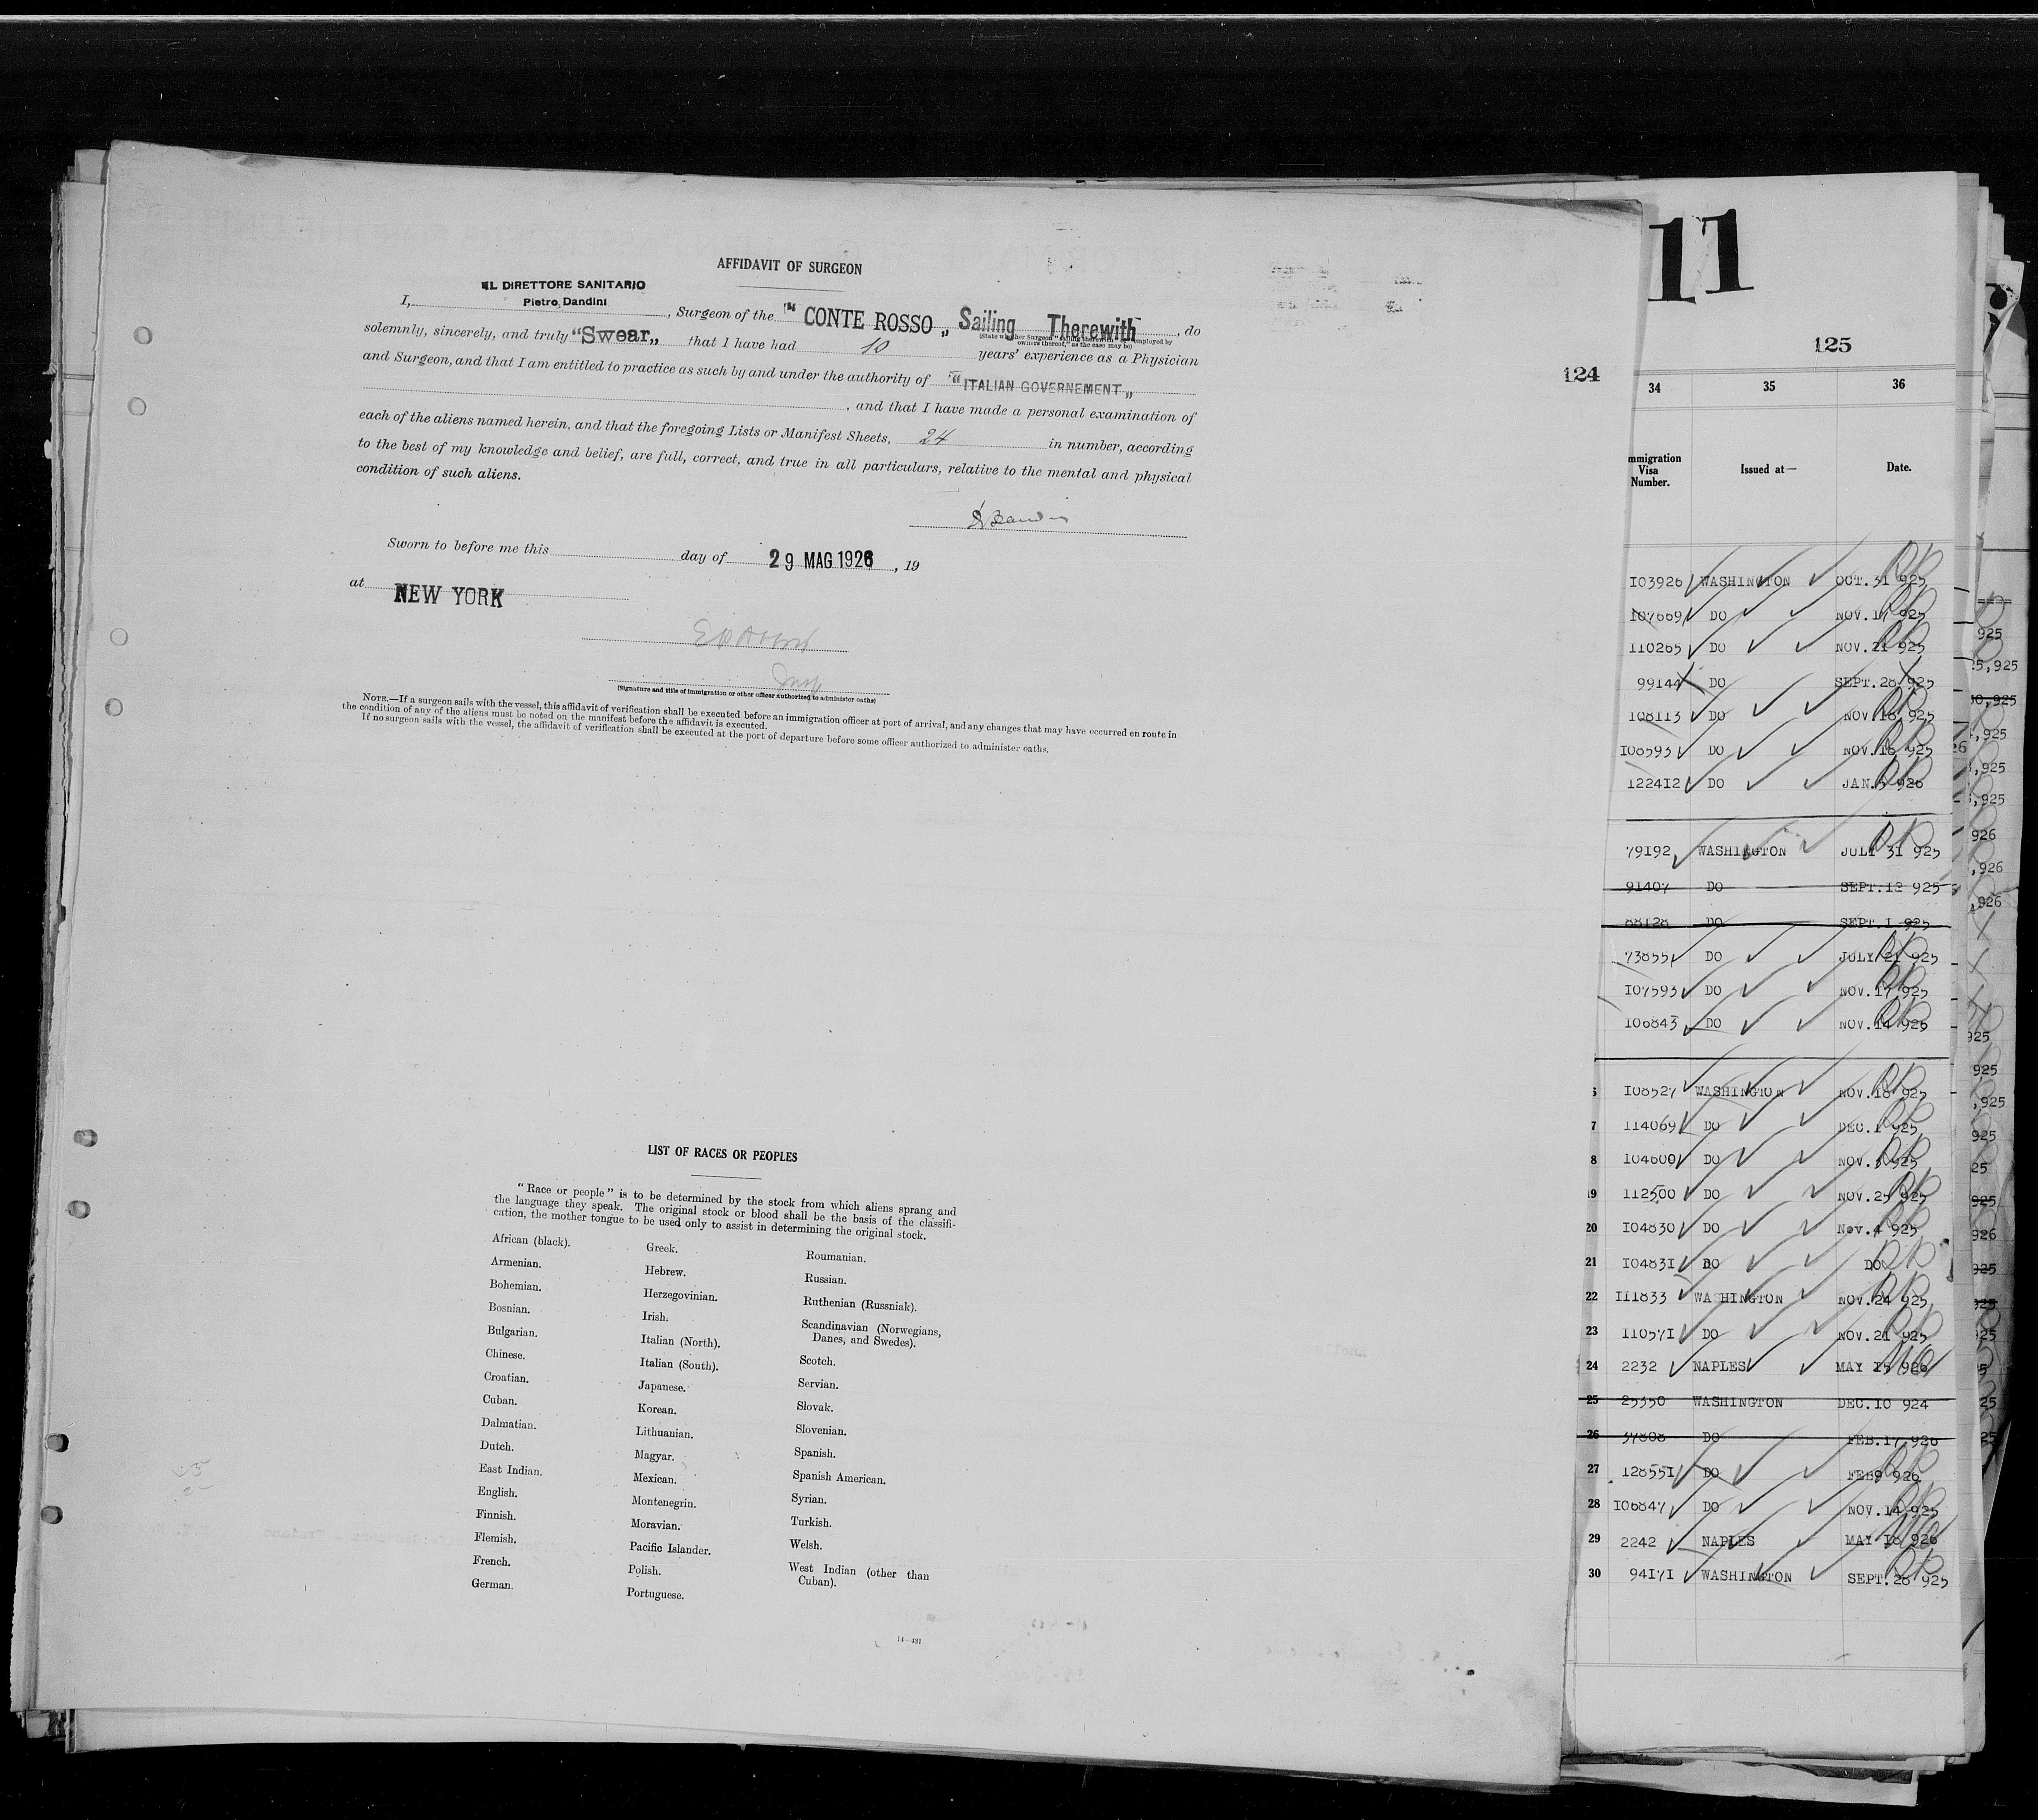 AFFIDAVIT OF SURGEON
IL DIRETTORE SANITARIO
Pietro Dandini
I, , Surgeon of the "CONTE ROSSO„ Sailing Therewith , do
(State whether Surgeon "sailing therewith" or "employed by
owners thereof," as the case may be)
solemnly, sincerely, and truly "Swear„ that I have had 10 years' experience as a Physician
and Surgeon, and that I am entitled to practice as such by and under the authority of "ITALIAN GOVERNEMENT„
, and that I have made a personal examination of
each of the aliens named herein, and that the foregoing Lists or Manifest Sheets, 24 in number, according
to the best of my knowledge and belief, are full, correct, and true in all particulars, relative to the mental and physical
condition of such aliens.
Sworn to before me this day of 29 MAG 1926, 19
at NEW YORK
Insp
(Signature and title of immigration or other officer authorized to administer oaths)
NOTE.—If a surgeon sails with the vessel, this affidavit of verification shall be executed before an immigration officer at port of arrival, and any changes that may have occurred en route in
the condition of any of the aliens must be noted on the manifest before the affidavit is executed.
If no surgeon sails with the vessel, the affidavit of verification shall be executed at the port of departure before some officer authorized to administer oaths.
LIST OF RACES OR PEOPLES
"Race or people" is to be determined by the stock from which aliens sprang and
the language they speak. The original stock or blood shall be the basis of the classifi-
cation, the mother tongue to be used only to assist in determining the original stock.
African (black).
Armenian.
Bohemian.
Bosnian.
Bulgarian.
Chinese.
Croatian.
Cuban.
Dalmatian.
Dutch.
East Indian.
English.
Finnish.
Flemish.
French.
German.
Greek.
Hebrew.
Herzegovinian.
Irish.
Italian (North).
Italian (South).
Japanese.
Korean.
Lithuanian.
Magyar.
Mexican.
Montenegrin.
Moravian.
Pacific Islander.
Polish.
Portuguese.
Roumanian.
Russian.
Ruthenian (Russniak).
Scandinavian (Norwegians,
Danes, and Swedes).
Scotch.
Servian.
Slovak.
Slovenian.
Spanish.
Spanish American.
Syrian.
Turkish.
Welsh.
West Indian (other than
Cuban).
14—431
124
11
125
34 35 36
mmigration
Visa
Number.
Issued at—
Date.
103926 WASHINGTON OCT.31 925
107669 DO NOV.17 925
110265 DO NOV.21 925
99144 DO SEPT.28 925
108113 DO NOV.18 925
108593 DO NOV.18 925
122412 DO JAN.5 926
79192 WASHINGTON JULY 31 925
91407 DO SEPT.12 925
88128 DO SEPT.1 925
73855 DO JULY 21 925
107593 DO NOV.17 925
106843 DO NOV.14 926
108527 WASHINGTON NOV.18 925
7 114069 DO DEC.1 925
8 104600 DO NOV.3 925
19 112500 DO NOV.25 925
20 104830 DO Nov.4 925
21 104831 DO DO
22 111833 WASHINGTON NOV.24 925
23 110571 DO NOV.21 925
24 2232 NAPLES MAY 15 926
25 25350 WASHINGTON DEC.10 924
26 37808 DO FEB.17 926
27 128551 DO FEB9 926
28 106847 DO NOV.14 925
29 2242 NAPLES MAY 18 926
30 94171 WASHINGTON SEPT.28 925